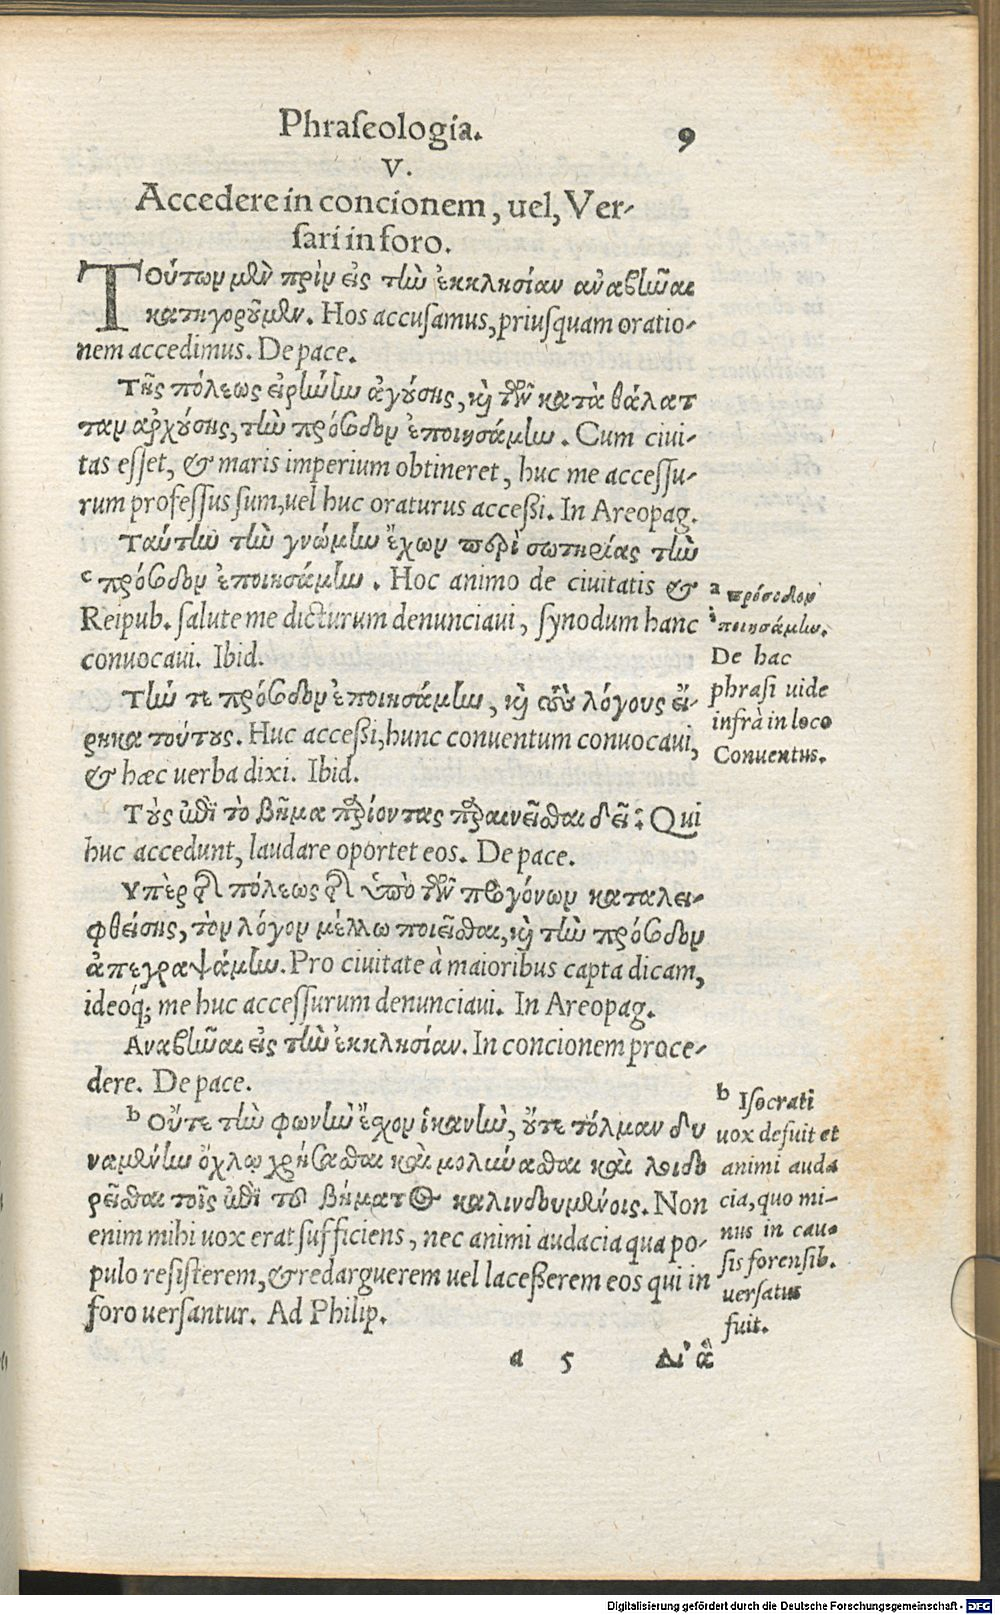 Phraſeologia.
9
V.
Accedere in concionem, uel, Ver-
ſari in foro.
Τούτων μὲν πρὶν εἰς τὴν ἐκκλησίαν ἀναβῆναι
κατηγοροῦμεν. Hos accuſamus, priuſquam oratio-
nem accedimus. De pace.
Τῆς πόλεως εἰρήνην ἀγούσης, καὶ τῶν κατὰ θάλατ
ταν ἀρχούσης, τὴν πρόσοδον ἐποιησάμην. Cum ciui-
tas eſſet, & maris imperium obtineret, huc me acceſſu-
rum profeſſus ſum, uel huc oraturus acceßi. In Areopag.
Ταύτην τὴν γνώμην ἔχων περὶ σωτηρίας τὴν
c πρόσοδον ἐποιησάμην. Hoc animo de ciuitatis &
Reipub. ſalute me dicturum denunciaui, ſynodum hanc
conuocaui. Ibid.
Τήν τε πρόσοδον ἐποιησάμην, καὶ τοὺς λόγους εἴ-
ρηκα τούτους. Huc acceßi, hunc conuentum conuocaui,
& hæc uerba dixi. Ibid.
Τοὺς ἐπὶ τὸ βῆμα παριόντας παραινεῖσθαι δεῖ: Qui
huc accedunt, laudare oportet eos. De pace.
Υπὲρ τῆς πόλεως τῆς ὑπὸ τῶν προγόνων καταλει-
φθείσης, τὸν λόγον μέλλω ποιεῖσθαι, καὶ τὴν πρόσοδον
ἀπεγραψάμην. Pro ciuitate à maioribus capta dicam,
ideoq́; me huc acceſſurum denunciaui. In Areopag.
Αναβῆναι εἰς τὴν ἐκκλησίαν. In concionem proce-
dere. De pace.
b Οὔτε τὴν φωνὴν ἔσχον ἱκανὴν, οὔτε τόλμαν δυ
ναμένην ὄχλῳ χρῆσασθαι καὶ μολύνασθαι καὶ λοιδο
ρεῖσθαι τοῖς ἐπὶ τοῦ βήματος καλινδουμένοις. Non
enim mihi uox erat ſufficiens, nec animi audacia qua po-
pulo reſiſterem, & redarguerem uel laceßerem eos qui in
foro uerſantur. Ad Philip.
a 5
Δι' ἃ
a πρόσοδον
ἐποιησάμην.
De hac
phraſi uide
infrà in loco
Conuentus.
b Iſocrati
uox defuit et
animi auda
cia, quo mi-
nus in cau-
ſis forenſib.
uerſatus
fuit.
Digitalisierung gefördert durch die Deutsche Forschungsgemeinschaft - DFG